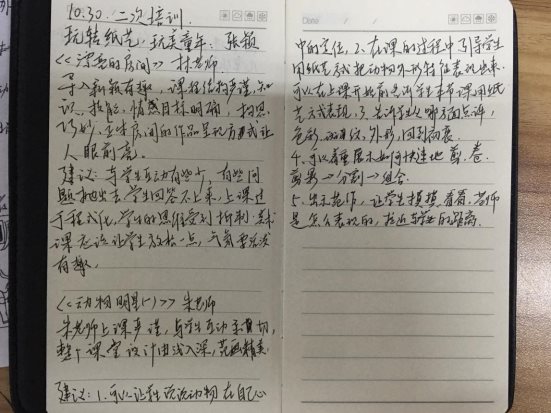 10.30. 二次培训.
玩转纸艺,玩美童年: 张颖
《漂亮的房间》 林老师
导入新颖有趣,课程结构严谨,知
识、技能、情感目标明确,构思
巧妙,立体房间的作品呈现方式让
人眼前亮。
建议:与学生互动有些少,有些问
题抛出去学生回答不上来,上课过
于程式化,学生的思维受到抑制,美术
课应该让学生放松一点,气氛要活泼
有趣。
《动物明星(一)》 朱老师
朱老师上课严谨,与学生互动亲切,
整个课堂设计由浅入深,范画精美
建议:1.可以让学生说说动物在自己心
Date
中的定位,2、在课的过程中引导学生
用纸艺方式把动物外形特征表现出来.
可以在上课开始前告诉学生本节课用纸
艺方式表现,3.告诉学生从哪方面点评,
色彩、外形,回到
4.可以着重展示如何快速地剪、卷.
剪果→分割→组合.
5.出示范作,让学生摸摸、看看,老师
是怎么表现的,拉近与学生的距离.